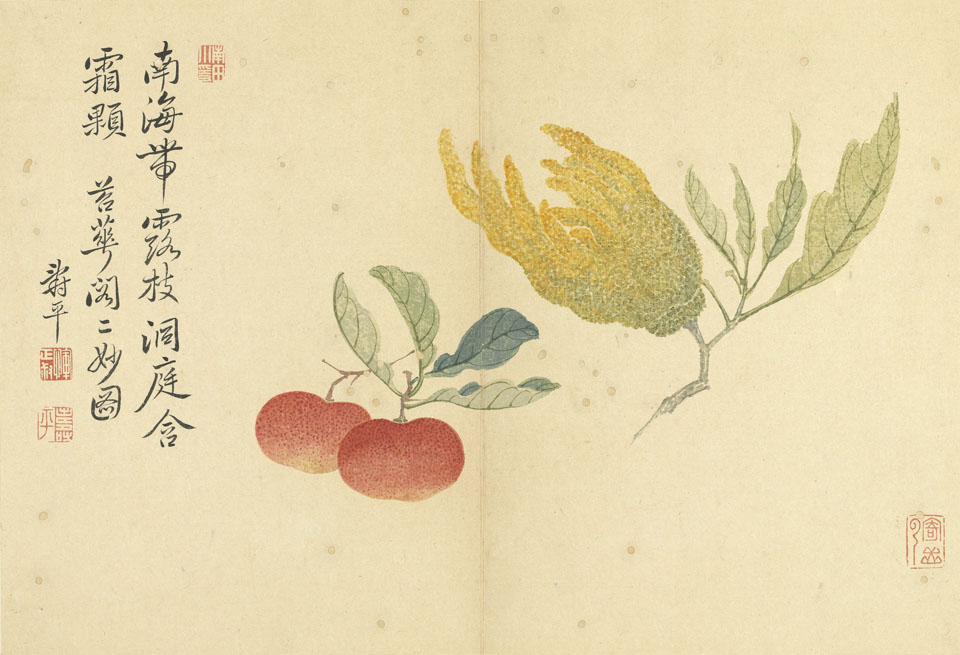 南海帶露枝洞庭含
霜顆
苕華閣二妙圖
壽平